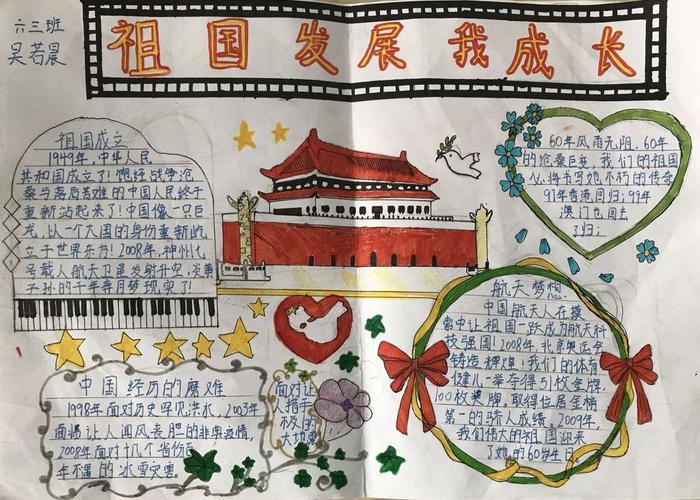 六三班
吴若晨
祖国发展我成长
祖国成立
1949年，中华人民
共和国成立了！饱经战争沧
桑与落后苦难的中国人民终于
重新站起来了！中国像一只巨
龙，以一个大国的身份重新屹
立于世界东方！2008年，神州七
号载人航天卫星发射升空，炎黄
子孙的千年奔月梦现实了！
60年风雨无阻，60年
的沧桑巨变，我们的祖国
必将书写她不朽的传奇
97年香港回归；99年
澳门也回去
了归；
航天梦想：
中国航天人在摸
索中让祖国一跃成为航天科
技强国！2008年，北京奥运会
铸造辉煌！我们的体育
健儿一举夺得51枚金牌，
100枚奖牌，取得位居金榜
第一的骄人成绩。2009年，
我们伟大的祖国迎来
了她的60岁生日
中国经历的磨难
1998年面对历史罕见洪水，2003年
面临让人闻风丧胆的非典疫情，
2008年面对十几个省份百
年不遇的冰雪灾害。
面对让
人措手
不及的
大地震